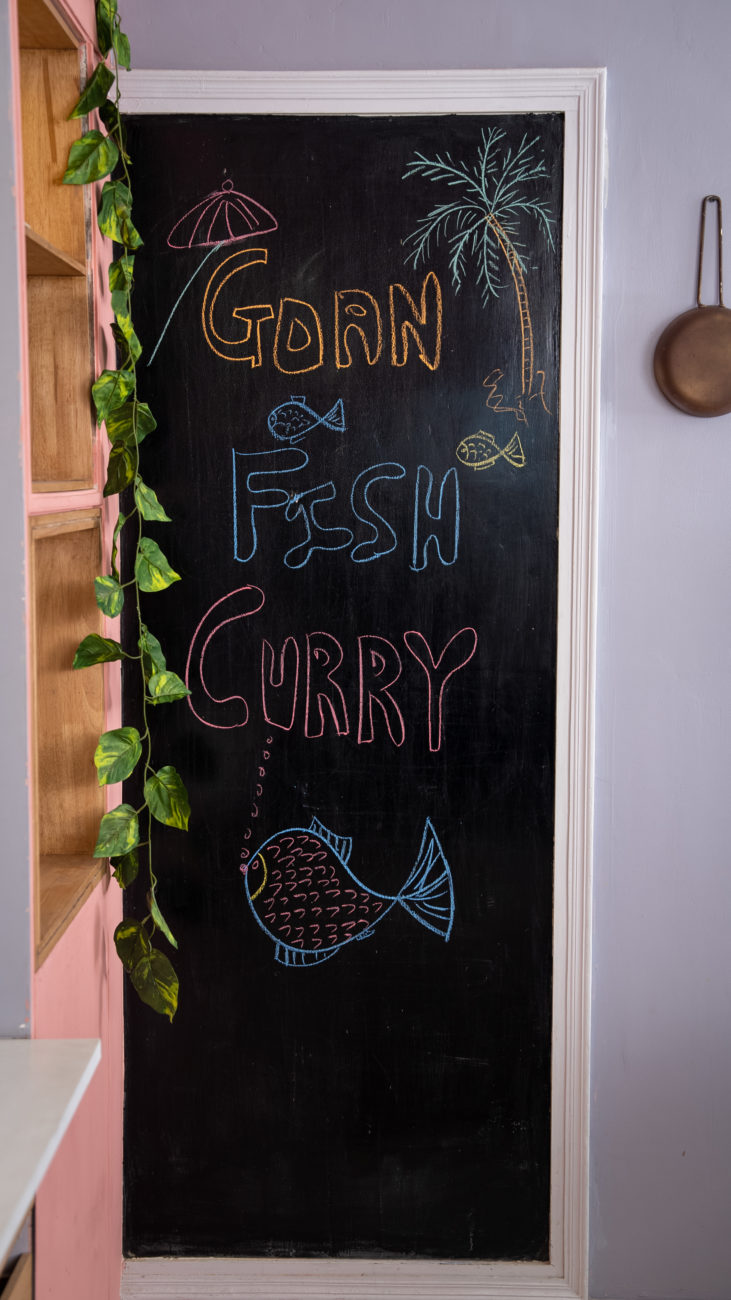 GOAN
FISH
CURRY